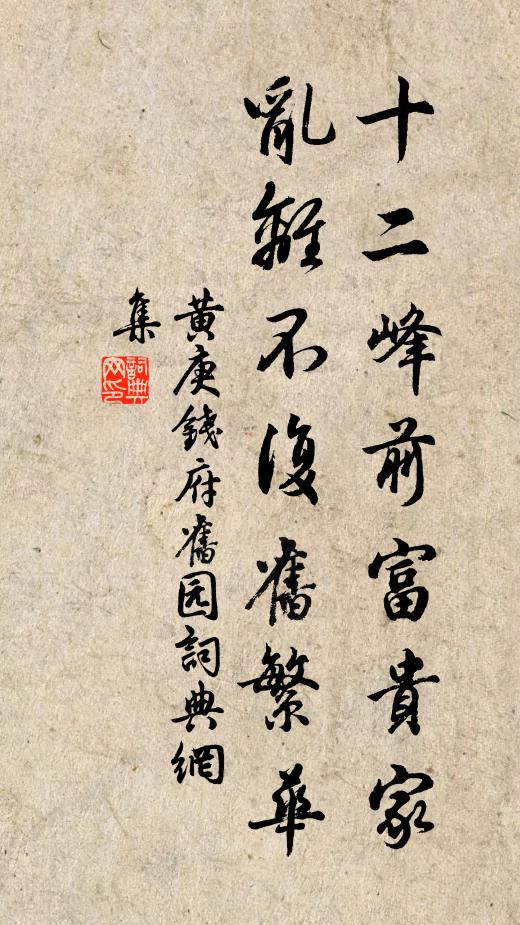 十二峰前富貴家
亂離不復舊繁華
黄庚錢府舊园詞典網
集
詞典
网印